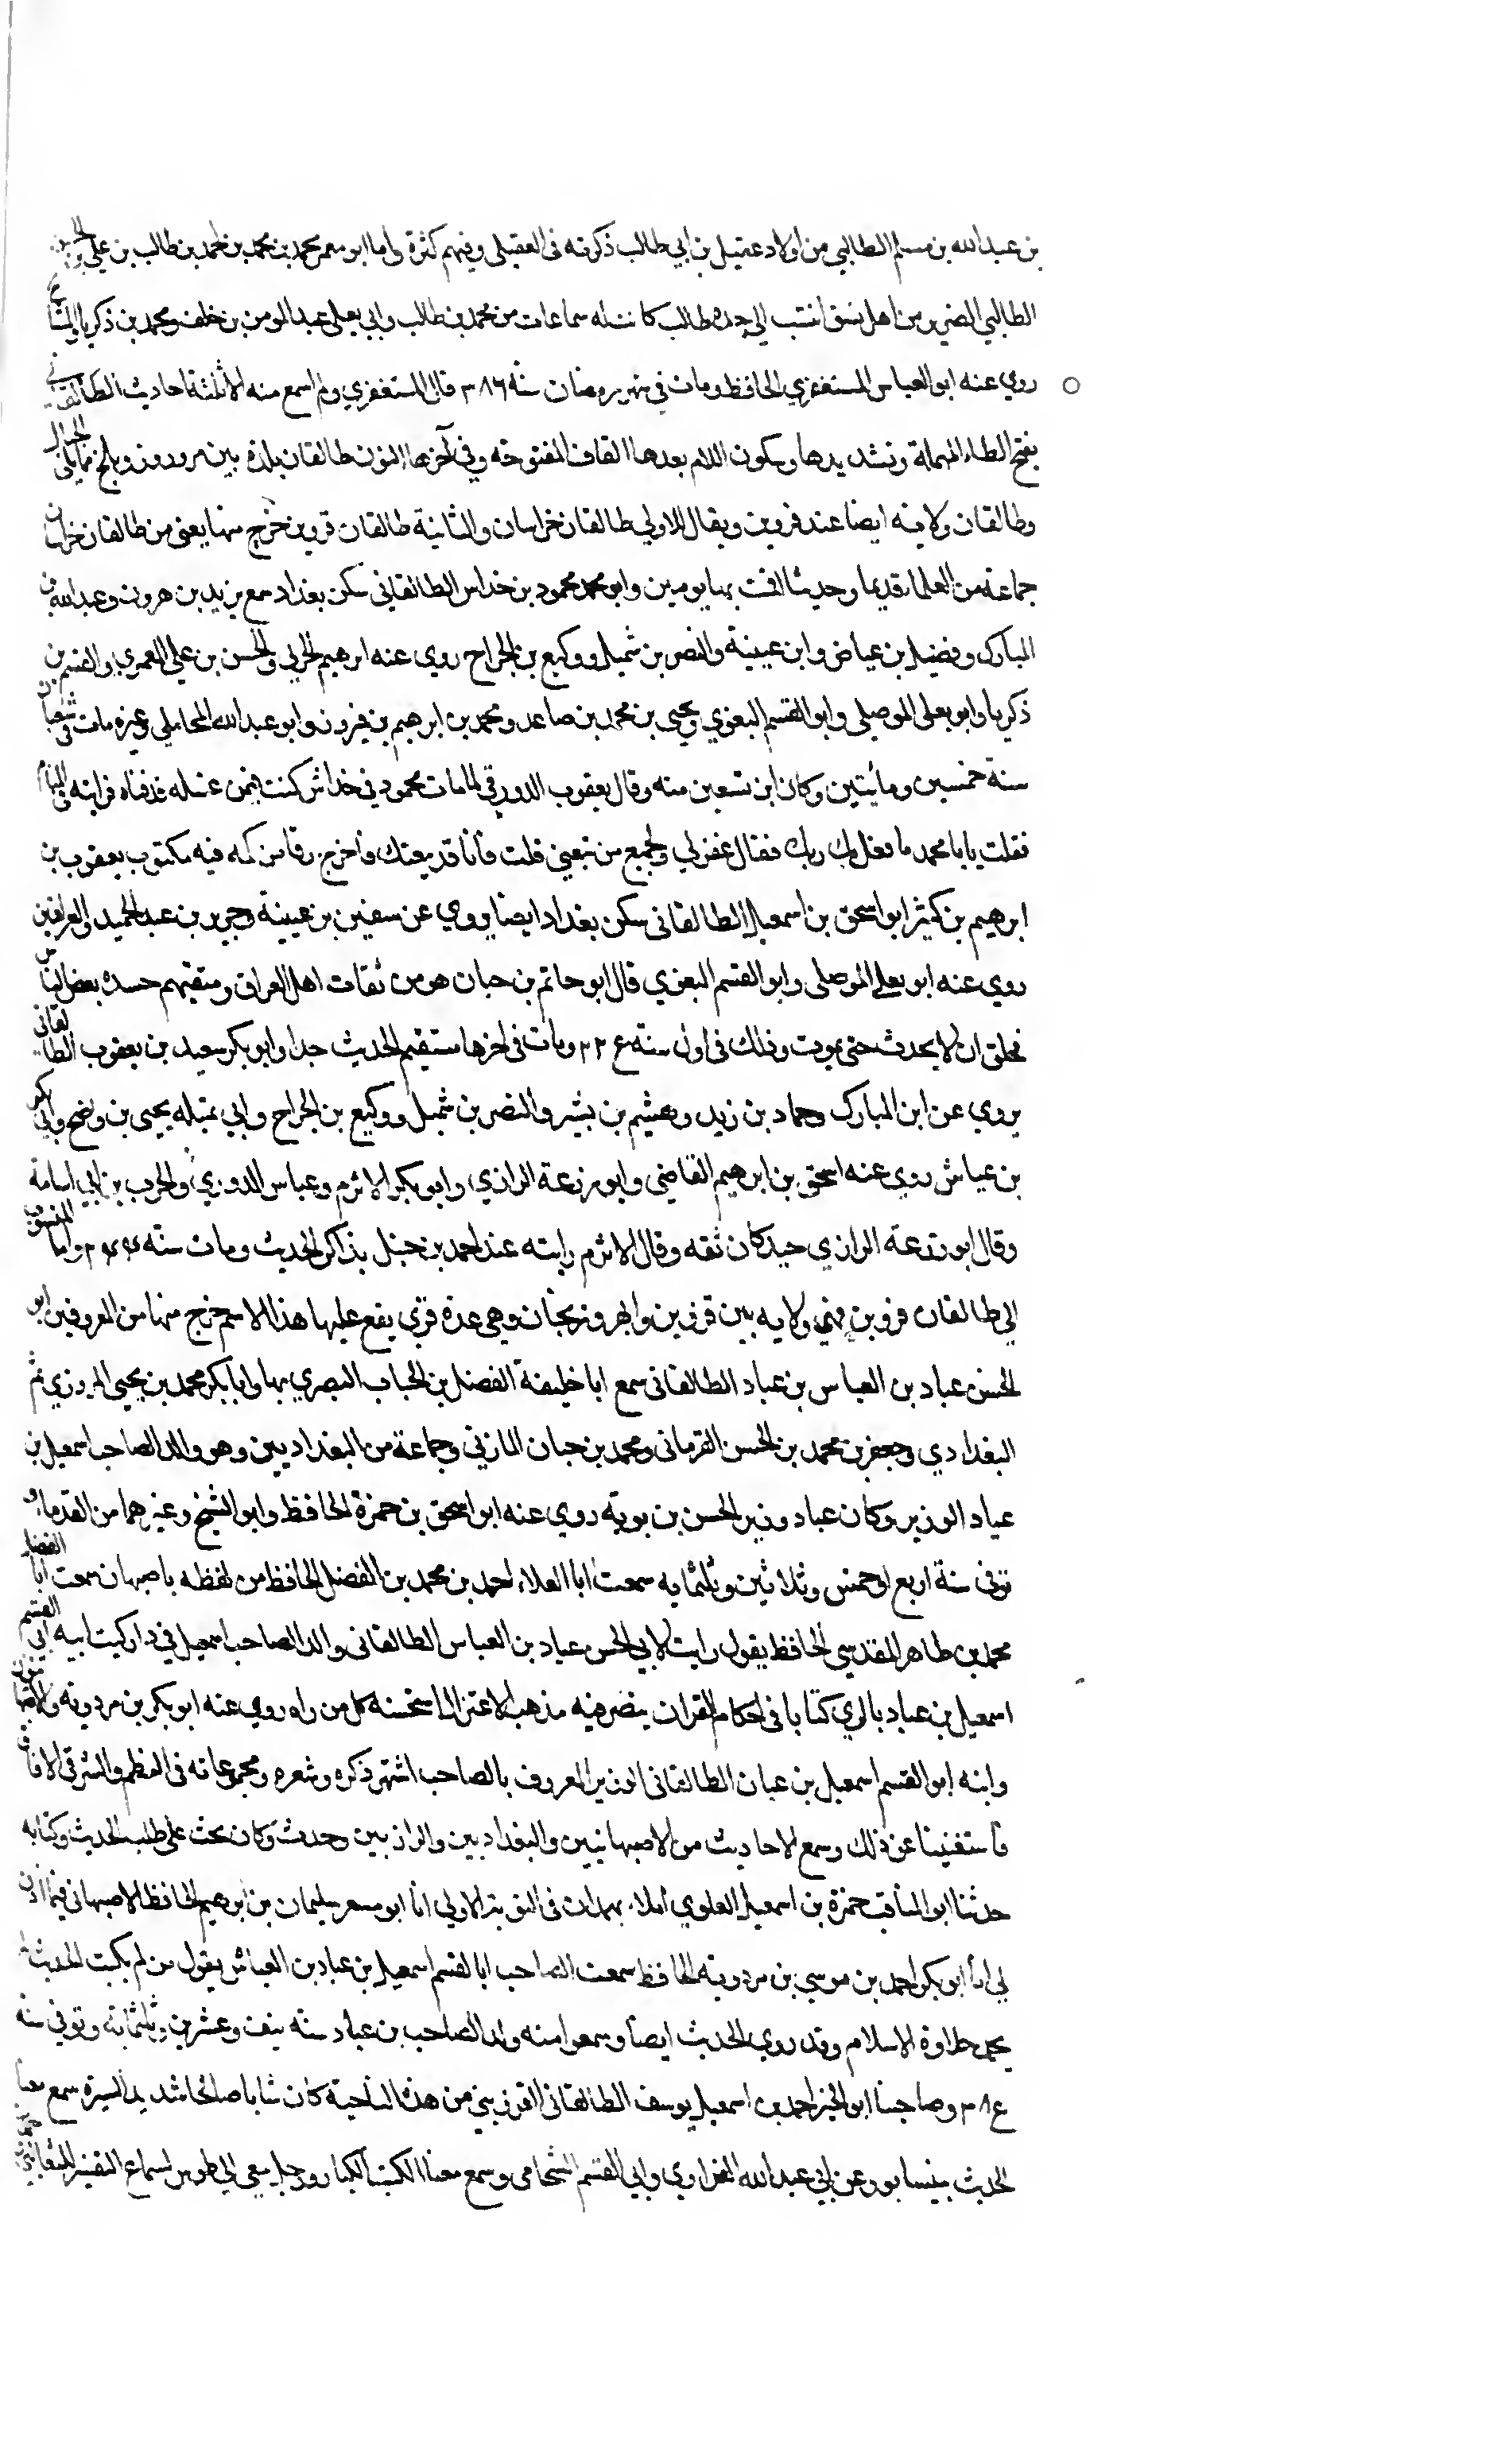 بن عبد الله بن مسلم الطالبي من اولاد عقيل بن ابي طالب ذكرته فى العقيلى وفيهم كثرة واما ابو معمر محمد بن محمد بن احمد بن طالب بن علي بن الحسن
الطالبي الضرير من اهل نسف انتسب الي جده طالب كانت له سماعات من محمد بن طالب وابي يعلى عبد المومن بن خلف ومحمد بن زكريا وابن المشاع
روي عنه ابو العباس المستغفري الحافظ ومات في شهر رمضان سنة ٣٨٦ قال المستغفري ولم اسمع منه الا ثلثة احاديث الطالقاني
بفتح الطاء المهملة وتشديدها وسكون اللام بعدها القاف المفتوحة وفي آخرها النون طالقان بلدة بين مرورود وبلخ مما يلى الجبال
وطالقان ولاية ايضا عند قزوين ويقال للاولي طالقان خراسان والثانية طالقان قزوين خرج منها يعنى من طالقان خراسان
جماعة من العلماء قديما وحديثا اقمت بها يومين وابو محمد محمود بن خداس الطالقاني سكن بغداد سمع يزيد بن هرون وعبد الله بن
المبارك وفضيل بن عياض وابن عيينة والنضر بن شميل ووكيع بن الجراح روي عنه ابرهيم الحربي والحسن بن علي المعمري والقسم بن
زكريا وابو يعلى الموصلي وابو القسم البغوي ويحيى بن محمد بن صاعد ومحمد بن ابرهيم بن فيروز وابو عبد الله المحاملي وغيره مات فى شعبان
سنة خمسين ومائيتين وكان ابن تسعين سنه وقال يعقوب الدورقي لما مات محمود في خداش كنت فيمن غسله فدفناه فرايته فى المنام
فقلت يابا محمد ما فعل بك ربك فقال غفر لي ولجميع من تبعني قلت فانا قد تبعتك فاخرج رقا من كمه فيه مكتوب يعقوب بن
ابرهيم بن كثير ابو اسحق بن اسمعيل الطالقاني سكن بغداد ايضا يروي عن سفين بن عيينة وجرير بن عبد الحميد والعراقين
روي عنه ابو يعلي الموصلى وابو القسم البغوي قال ابو حاتم بن حبان هو من ثقات اهل العراق ومتقنيهم حسده بعض الناس
فحلق ان لا يحدث حتى يموت وذلك فى اول سنة ٢٢٤ ومات فى اخرها مستقيم الحديث جدا وابو بكر سعيد بن يعقوب الطالقاني
يروي عن ابن المبارك وحماد بن زيد وهشيم بن بشير والنضر بن شميل ووكيع بن الجراح وابي تميله يحيى بن واضح وابي بكر
بن عياش روي عنه اسحق بن ابرهيم القاضي وابو زرعة الرازي وابو بكر الاثرم وعباس الدوري والحرب بن ابي اسامة
وقال ابو زرعة الرازي حيد كان ثقه وقال الاثرم رايته عند احمد بن حنبل يذاكر الحديث ومات سنة ٢٤٤ واما المنسوب
الي طالقان قزوين فهي ولايه بين قزوين وابهر وزنجان وهي عدة قري يقع عليها هذا الاسم خرج منها من المعروفين ابو
الحسن عباد بن العباس بن عباد الطالقاني سمع ابا خليفة الفضل بن الحباب البصري بها وابا بكر محمد بن يحيى المروزي ثم
البغدادي وجعفر بن محمد بن الحسن الفرماني ومحمد بن حبان المازني وجماعة من البغداديين وهو والد الصاحب اسمعيل بن
عباد الوزير وكان عباد وزير الحسن بن بويه روي عنه ابو اسحق بن حمزة الحافظ وابو الشيخ وغيرهما من القدماء و
توفى سنة اربع او خمس وثلاثين وثلثمايه سمعت ابا العلاء احمد بن محمد بن الفضل الحافظ من لفظه باصبهان سمعت ابا الفضل
محمد بن طاهر المقدسي الحافظ يقول رايت لابي الحسن عباد بن العباس الطالقانى والد الصاحب اسمعيل في دار كتب ابيه ابي القسم
اسمعيل بن عباد بالري كتابا فى احكام القران ينصر فيه مذهب الاعتزال استحسنه كل من راه روي عنه ابو بكر بن مردويه والاصبهانيون
وابنه ابو القسم اسمعيل بن عبان الطالقانى الوزير المعروف بالصاحب اشتهر ذكره وشعره ومجموعاته فى النظم والنثر في الافاق
فاستغنينا عن ذلك وسمع الاحاديث من الاصبهانيين والبغداديين والرازيين وحدث وكان يحث على طلب الحديث وكتابه
حدثنا ابو المناقب حمزة بن اسمعيل العلوي املاء بهمدان فى النوبة الاولي انا ابو مسعر سليمان بن ابرهيم الحافظ الاصبهاني فيما اذن
لي انا ابو بكر احمد بن موسي بن مردويه الحافظ سمعت الصاحب ابا القسم اسمعيل بن عباد بن العباس يقول من لم يكتب الحديث لم
يجد حلاوة الاسلام وقد روي الحديث ايضا وسمعوا منه ولد الصاحب بن عباد سنه نيف وعشرين وثلثماية وتوفي سنه
٣٨٤ وصاحبنا ابو الخير احمد بن اسمعيل يوسف الطالقانى القزويني من هذه الناحية كان شابا صالحا سديد السيرة سمع معنا
الحديث بنيسابور عن ابي عبد الله الفراوي وابي القسم الشحامي وسمع معنا الكتب الكبار ورحل معي الي طوس لسماع التفسير للثعالبي